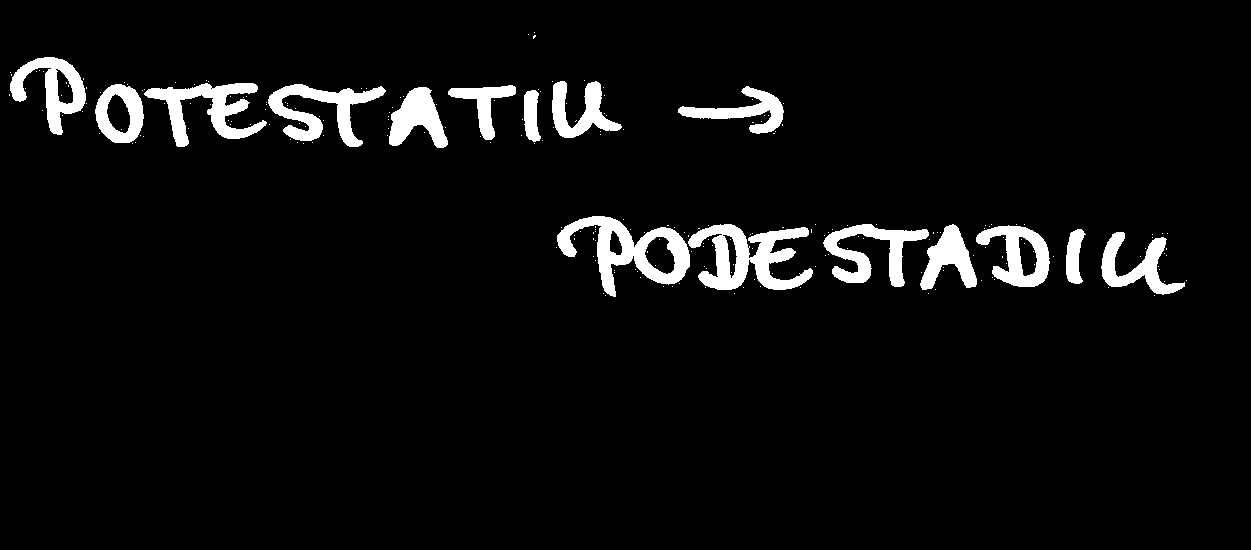 POTESTATIU →
PODESTADIU